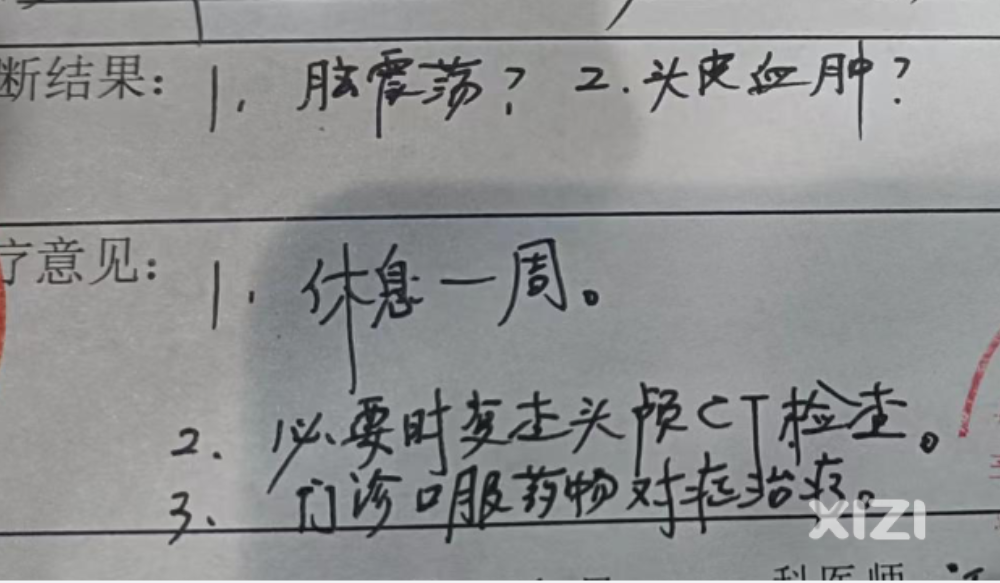 断结果：1. 脑震荡？ 2. 头皮血肿？
疗意见：1. 休息一周。
2. 必要时复查头颅CT检查。
3. 门诊口服药物对症治疗。
XIZI
科医师